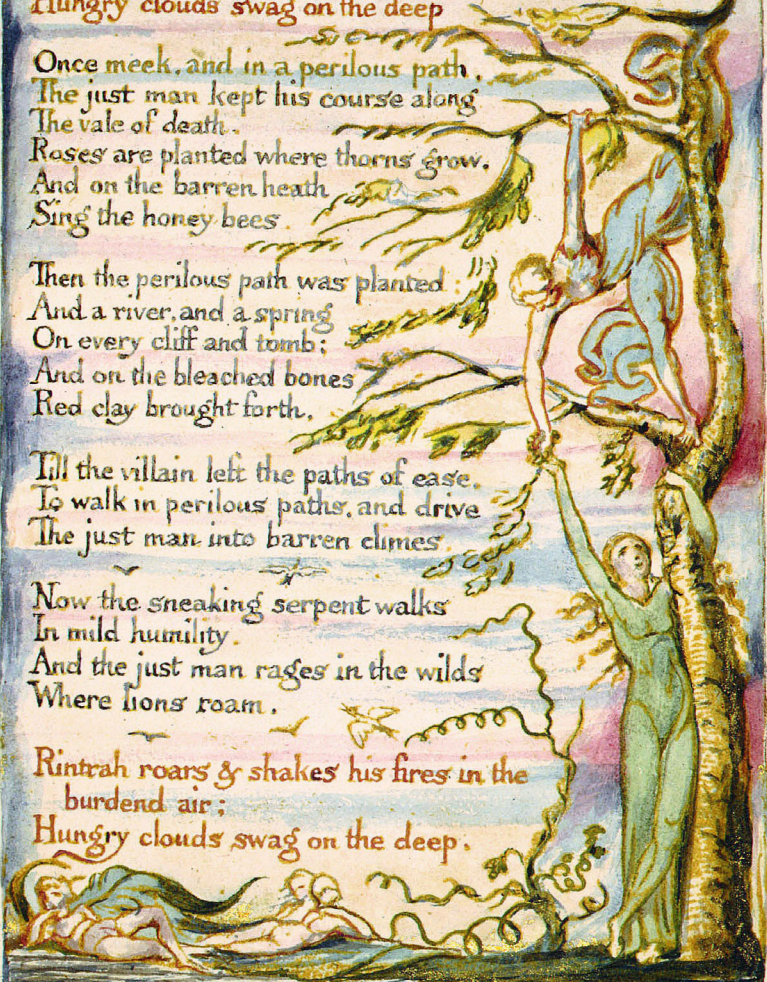 Hungry clouds swag on the deep
Once meek, and in a perilous path,
The just man kept his course along
The vale of death.
Roses are planted where thorns grow,
And on the barren heath
Sing the honey bees.
Then the perilous path was planted:
And a river, and a spring
On every cliff and tomb;
And on the bleached bones
Red clay brought forth.
Till the villain left the paths of ease,
To walk in perilous paths, and drive
The just man into barren climes.
Now the sneaking serpent walks
In mild humility.
And the just man rages in the wilds
Where lions roam.
Rintrah roars & shakes his fires in the
burdend air;
Hungry clouds swag on the deep.